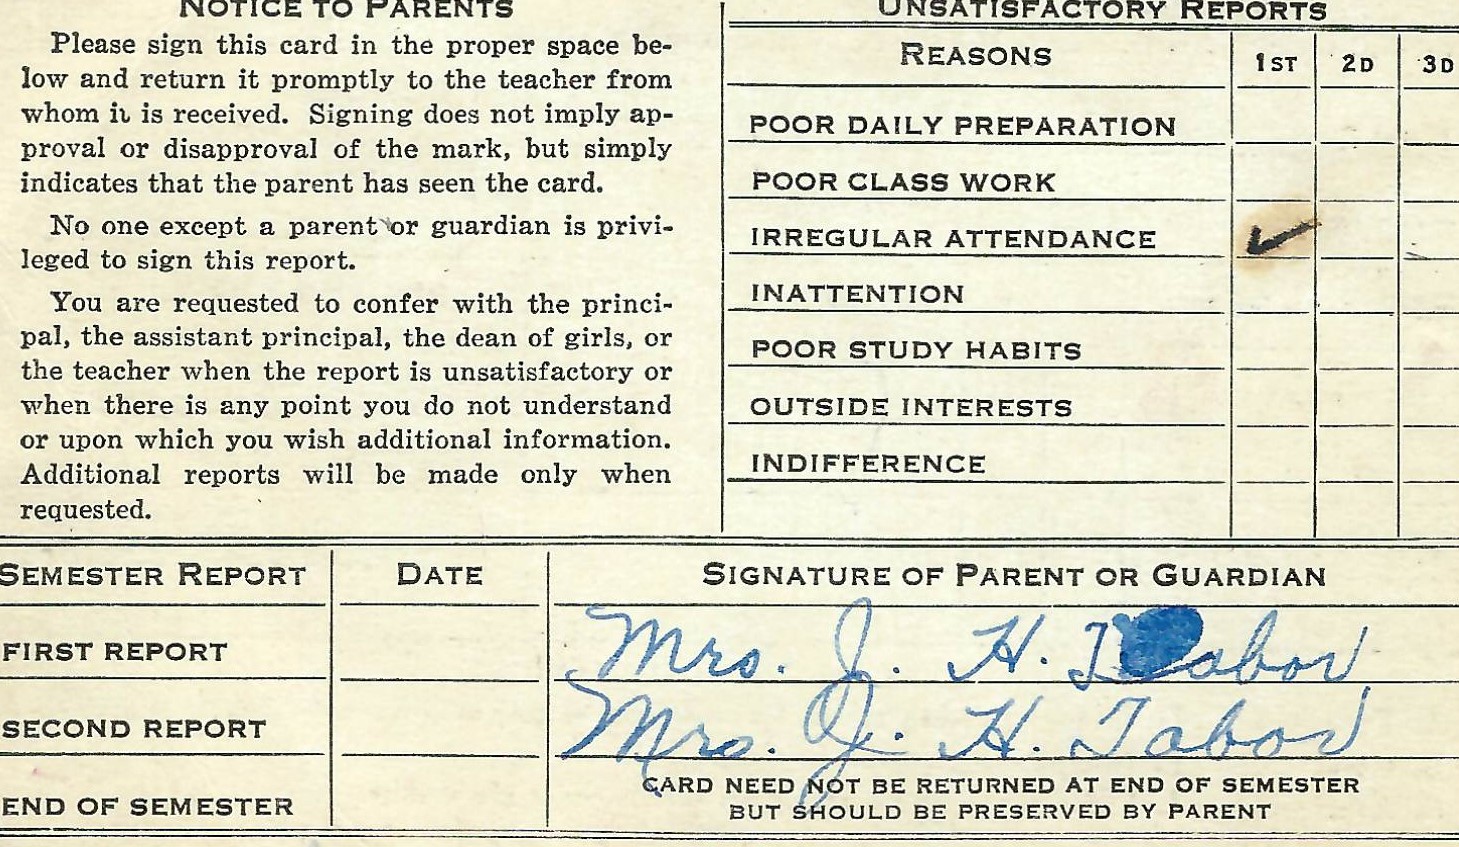 NOTICE TO PARENTS
Please sign this card in the proper space be-
low and return it promptly to the teacher from
whom it is received. Signing does not imply ap-
proval or disapproval of the mark, but simply
indicates that the parent has seen the card.
No one except a parent or guardian is privi-
leged to sign this report.
You are requested to confer with the princi-
pal, the assistant principal, the dean of girls, or
the teacher when the report is unsatisfactory or
when there is any point you do not understand
or upon which you wish additional information.
Additional reports will be made only when
requested.
UNSATISFACTORY REPORTS
REASONS 1ST 2D 3D
POOR DAILY PREPARATION
POOR CLASS WORK
IRREGULAR ATTENDANCE ✓
INATTENTION
POOR STUDY HABITS
OUTSIDE INTERESTS
INDIFFERENCE
SEMESTER REPORT DATE SIGNATURE OF PARENT OR GUARDIAN
FIRST REPORT Mrs. J. H. Tabor
SECOND REPORT Mrs. J. H. Tabor
END OF SEMESTER
CARD NEED NOT BE RETURNED AT END OF SEMESTER
BUT SHOULD BE PRESERVED BY PARENT